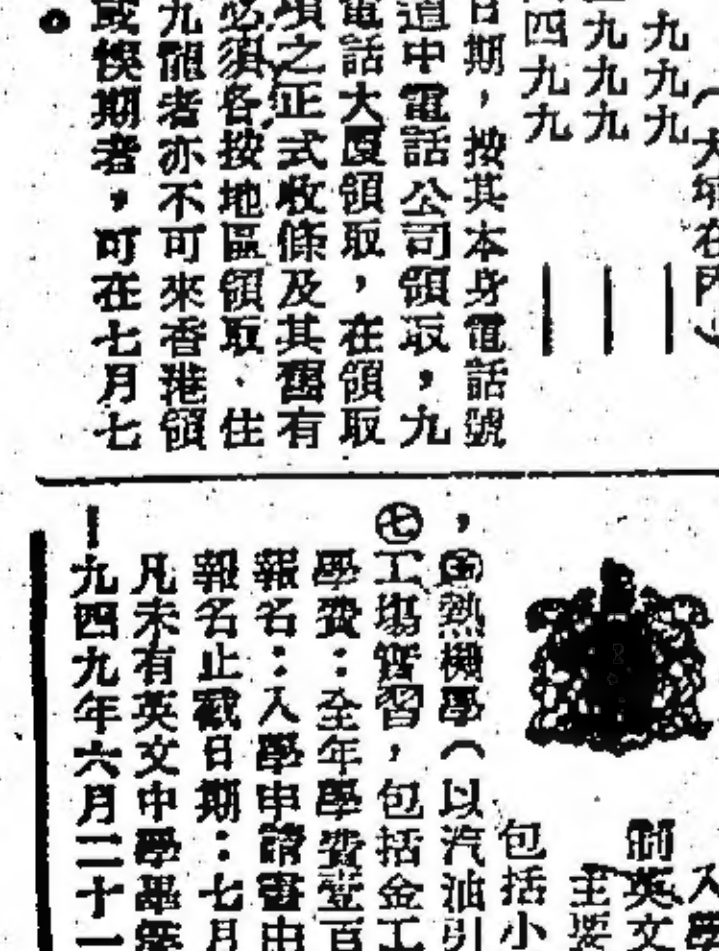 （大埔在內）
九九九
九九九
四九九
日期，按其本身電話號
道中電話公司領取，九
電話大廈領取，在領取
項之正式收條及其舊有
必須各按地區領取、住
九龍者亦不可來香港領
或悞期者，可在七月七
。
入學
個英文
主要
包括小
，㈥熱機學（以汽油引
㊆工塲實習，包括金工
學費：全年學費壹百
報名：入學申請書由
報名止截日期：七月
凡未有英文中學畢業
一九四九年六月二十一